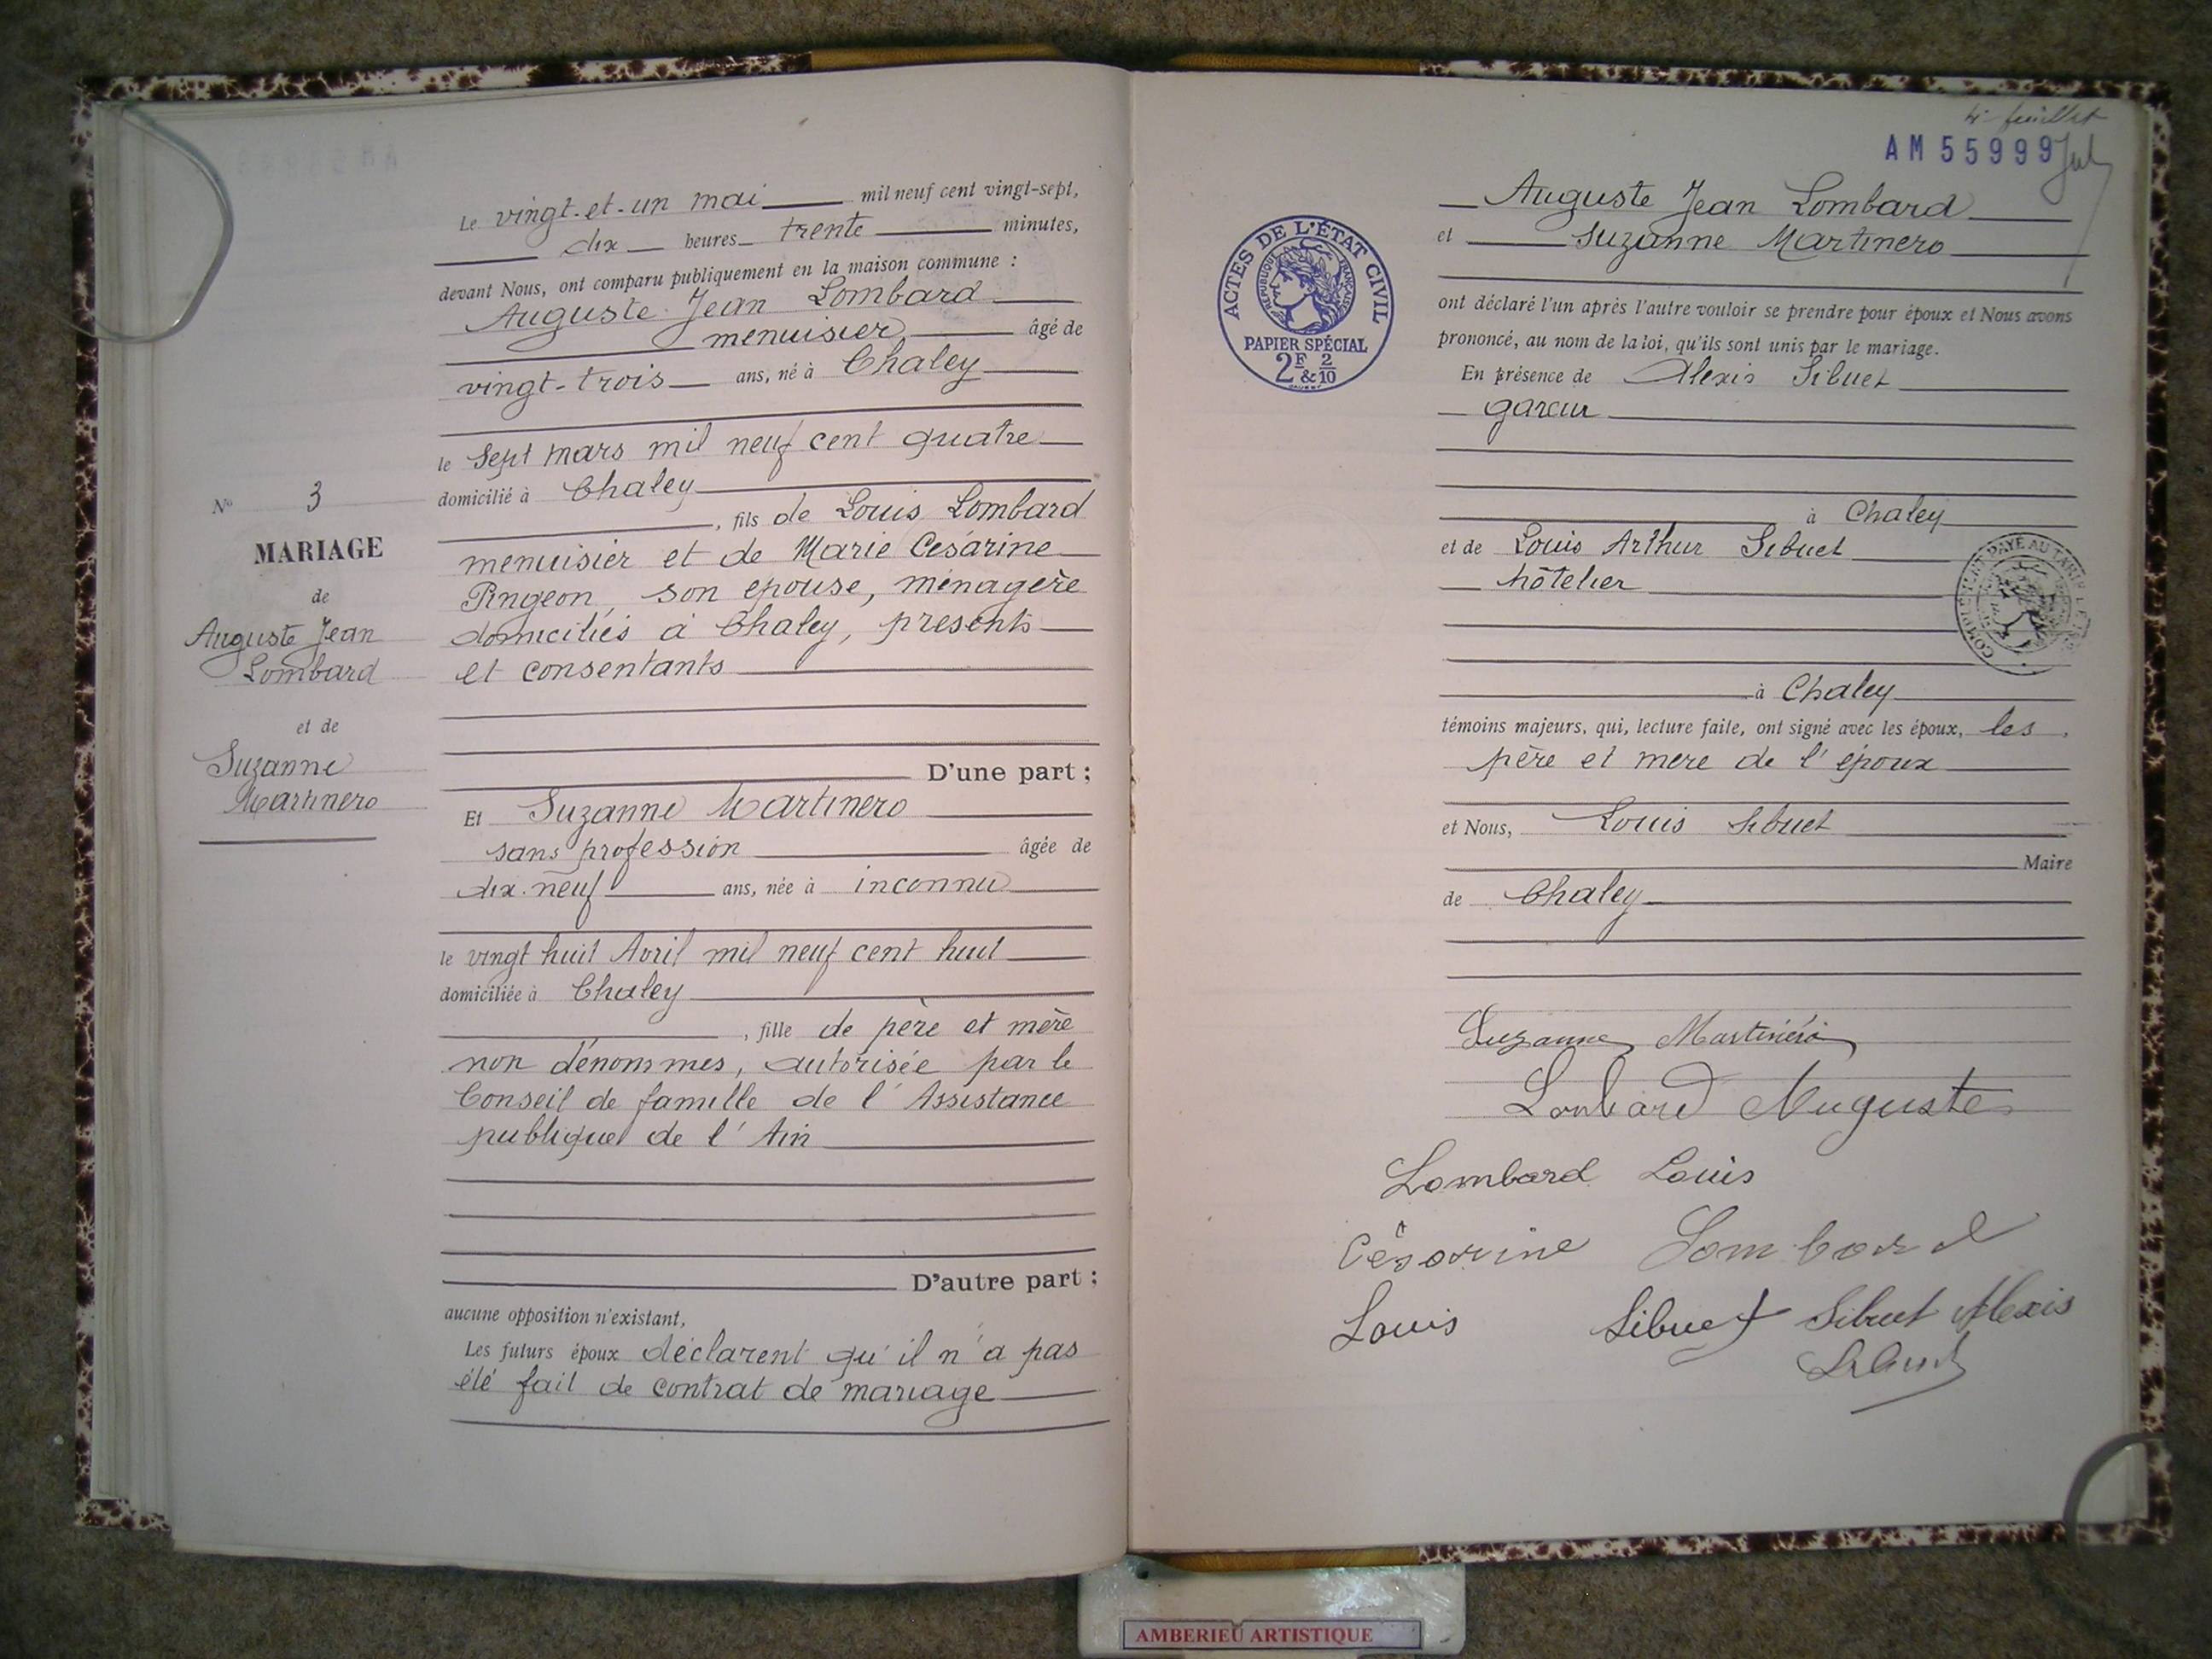 Le vingt-et-un mai mil neuf cent vingt-sept,
dix heures trente minutes,
devant Nous, ont comparu publiquement en la maison commune :
Auguste Jean Lombard
menuisier âgé de
vingt-trois ans, né à Chaley
le Sept mars mil neuf cent quatre
domicilié à Chaley
, fils de Louis Lombard
menuisier et de Marie Césarine
Pingeon, son épouse, ménagère
domiciliés à Chaley, présents
et consentants
D'une part ;
Et Suzanne Martinero
sans profession âgée de
dix-neuf ans, née à inconnu
le vingt huit Avril mil neuf cent huit
domiciliée à Chaley
, fille de père et mère
non dénommés, autorisée par le
Conseil de famille de l'Assistance
publique de l'Ain
D'autre part ;
aucune opposition n'existant,
Les futurs époux déclarent qu'il n'a pas
été fait de contrat de mariage
N° 3
MARIAGE
de
Auguste Jean
Lombard
et de
Suzanne
Martinero
4e feuillet
AM 55999
Auguste Jean Lombard
et Suzanne Martinero
ont déclaré l'un après l'autre vouloir se prendre pour époux et Nous avons
prononcé, au nom de la loi, qu'ils sont unis par le mariage.
En présence de Alexis Sibuet
à Chaley
et de Louis Arthur Sibuet
hôtelier
à Chaley
témoins majeurs, qui, lecture faite, ont signé avec les époux, les
père et mère de l'époux
et Nous, Louis Sibuet
Maire
de Chaley
ACTES DE L'ÉTAT CIVIL
RÉPUBLIQUE FRANÇAISE
PAPIER SPÉCIAL
2F & 2/10
Suzanne Martinero
Lombard Auguste
Lombard Louis
Césarine Lombard
Louis Sibuet Sibuet Alexis
AMBERIEU ARTISTIQUE